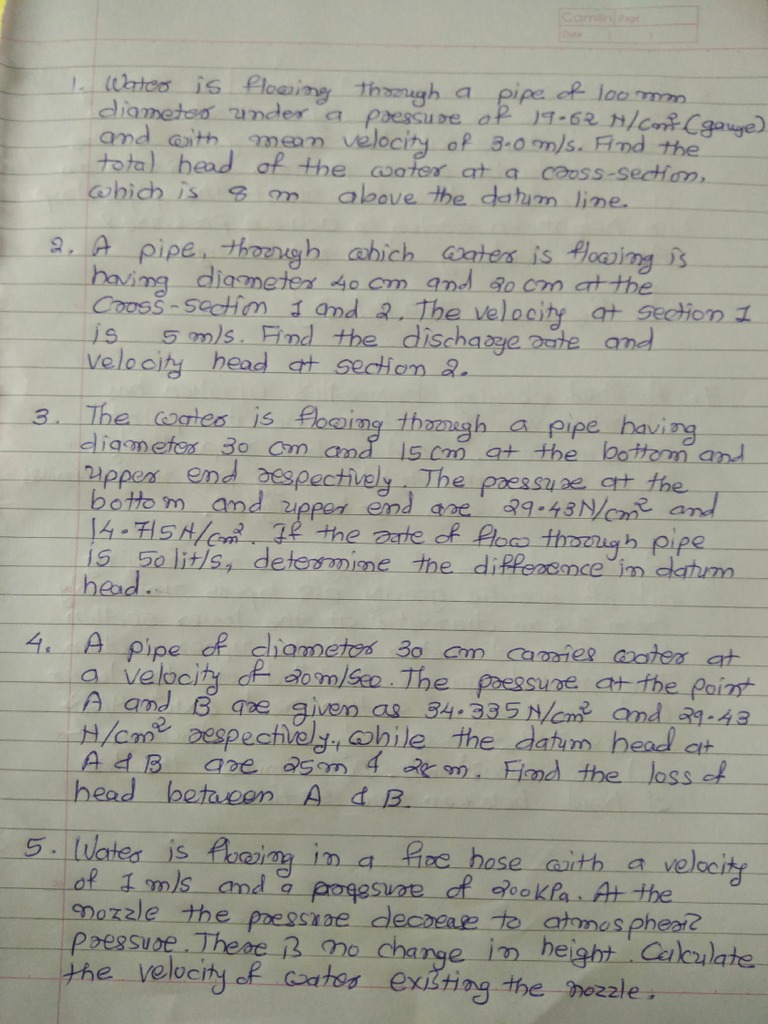 Camlin Page
Date / /
1. Water is flowing through a pipe of 100 mm
diameter under a pressure of 19.62 N/cm² (gauge)
and with mean velocity of 3.0 m/s. Find the
total head of the water at a cross-section,
which is 8 m above the datum line.
2. A pipe, through which water is flowing is
having diameter 40 cm and 20 cm at the
Cross-section 1 and 2. The velocity at section 1
is 5 m/s. Find the discharge rate and
velocity head at section 2.
3. The water is flowing through a pipe having
diameter 30 cm and 15 cm at the bottom and
upper end respectively. The pressure at the
bottom and upper end are 29.43 N/cm² and
14.715 N/cm². If the rate of flow through pipe
is 50 lit/s, determine the difference in datum
head.
4. A pipe of diameter 30 cm carries water at
a velocity of 20 m/sec. The pressure at the point
A and B are given as 34.335 N/cm² and 29.43
N/cm² respectively, while the datum head at
A & B are 25 m & 28 m. Find the loss of
head between A & B.
5. Water is flowing in a fire hose with a velocity
of 1 m/s and a pressure of 200 kPa. At the
nozzle the pressure decrease to atmospheric
pressure. There is no change in height. Calculate
the velocity of water existing the nozzle.